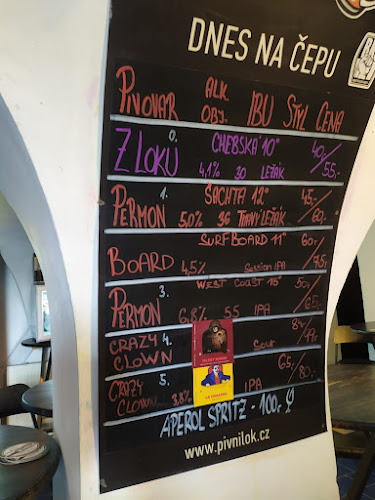 DNES NA ČEPU
PIVOVAR ALK. OBJ. IBU STYL CENA
0. CHEBSKÁ 10° 40/
Z LOKU 4,1% 30 LEŽÁK 55,-
1. ŠACHTA 12° 45,-/
PERMON 5,0% 36 TMAVÝ LEŽÁK 60,-
SURFBOARD 11° 60,-/
BOARD 4,5% Session IPA 75,-
3. WEST COAST 15° 50,-/
PERMON 6,8% 55 IPA 65,-
CRAZY 4.
CLOWN Sour
CRAZY 5. 65,-/
CLOWN 3,8% IPA 80,-
APEROL SPRITZ - 100,-
www.pivnilok.cz